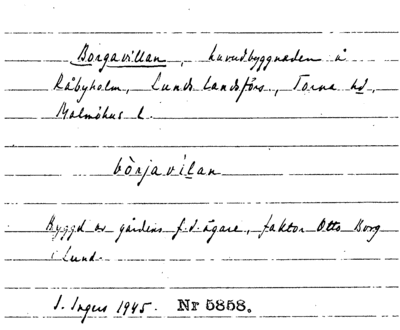 Borgavillan, huvudbyggnaden å
Råbyholm, Lunds landsförs., Torna hd,
Malmöhus l.
bòrjavilan
Byggd av gårdens f.d. ägare, faktor Otto Borg
i Lund.
I. Ingers 1945. Nr 5858.